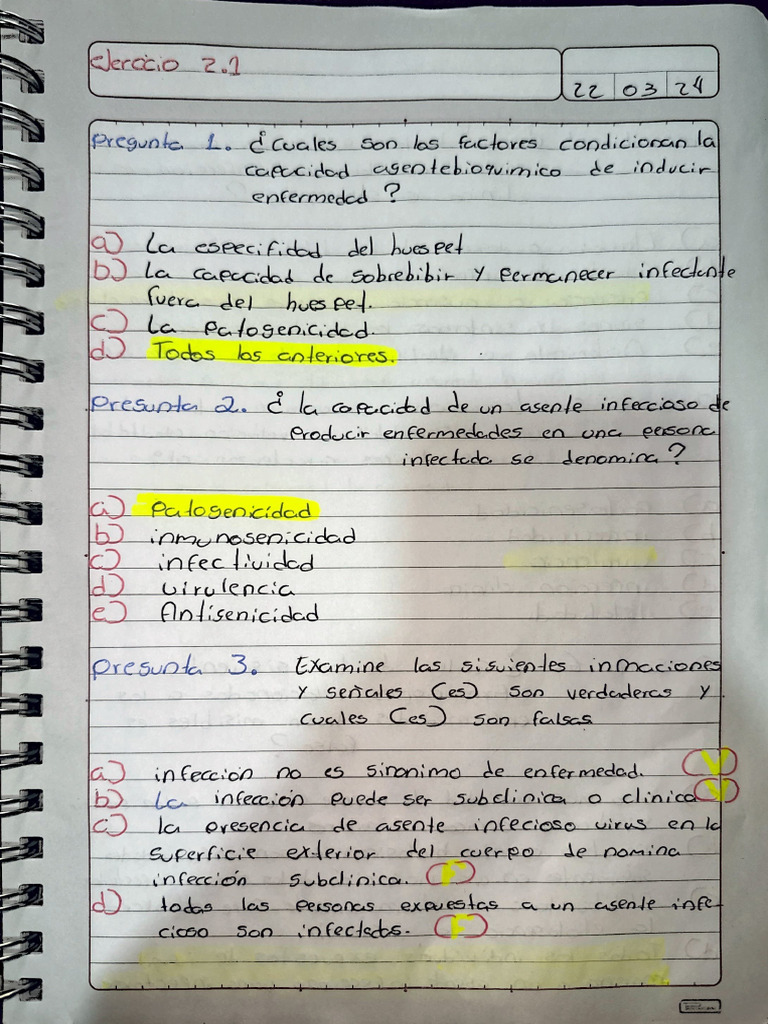 ejercicio 2.1
22 03 24
Pregunta 1. ¿cuales son los factores condicionan la
capacidad agentebioquimico de inducir
enfermedad?
a) La especifidad del huespet
b) La capacidad de sobrebibir y permanecer infectante
fuera del huespet.
c) La patogenicidad.
d) Todos los anteriores.
Pregunta 2. ¿ la capacidad de un agente infeccioso de
producir enfermedades en una persona
infectada se denomina?
a) patogenicidad
b) inmunogenicidad
c) infectividad
d) virulencia
e) Antigenicidad
Pregunta 3. Examine las siguientes inmaciones
y señales (es) son verdaderas y
cuales (es) son falsas
a) infección no es sinonimo de enfermedad. (V)
b) La infección puede ser subclinica o clinica (V)
c) la presencia de agente infecioso virus en la
superficie exterior del cuerpo de nomina
infección subclinica. (F)
d) todas las personas expuestas a un agente infe-
cioso son infectados. (F)